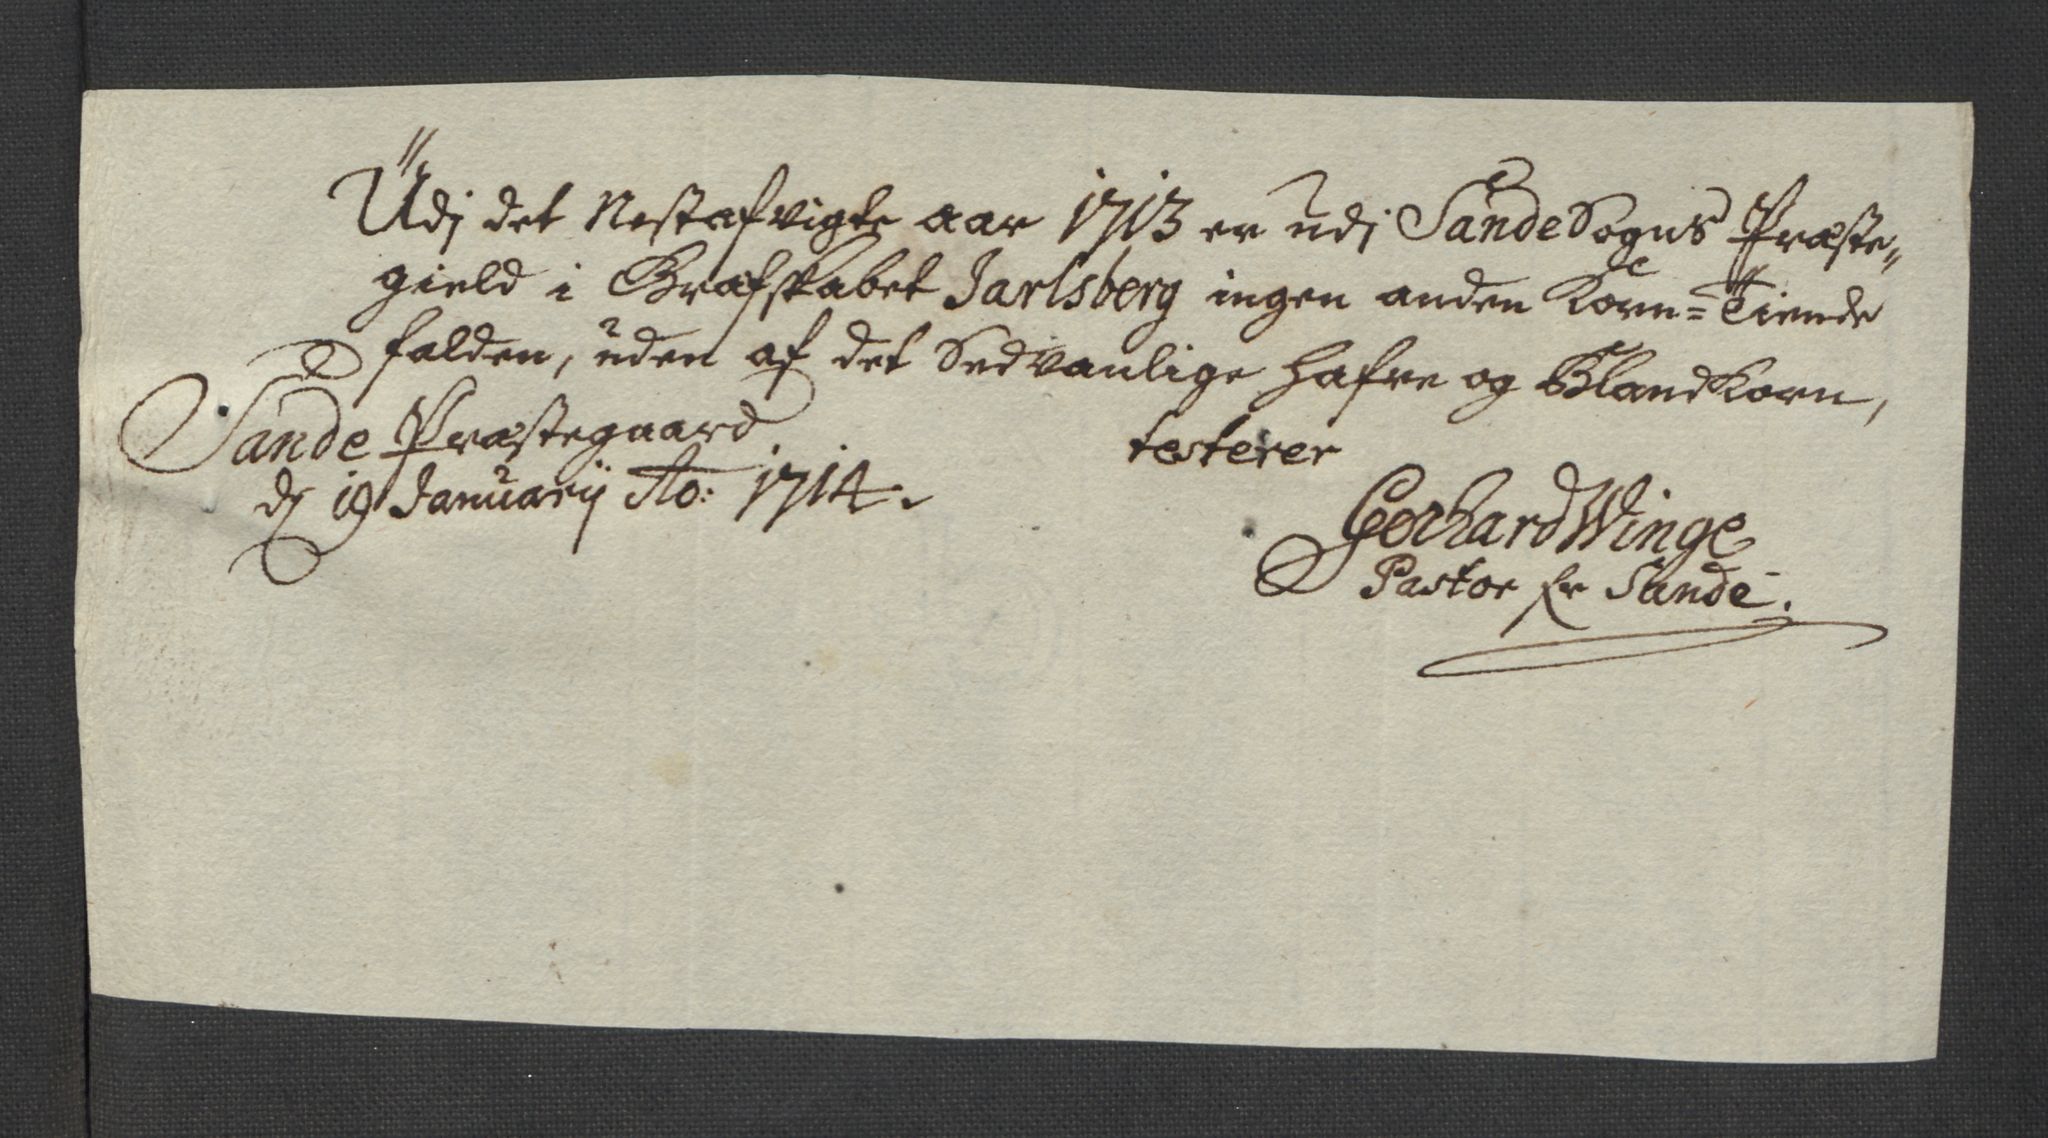 Udj det Nestafvigte aar 1713 er udj Sande Sogns Præste=
gield i Grafskabet Jarlsberg ingen anden Korn=Tiende
falden, uden af det Sedvanlige Hafre og Blandkorn,
testerer
Sande Præstegaard
dj 19 Januarij Ao: 1714.
Gerhard Winge
Pastor fr Sande.